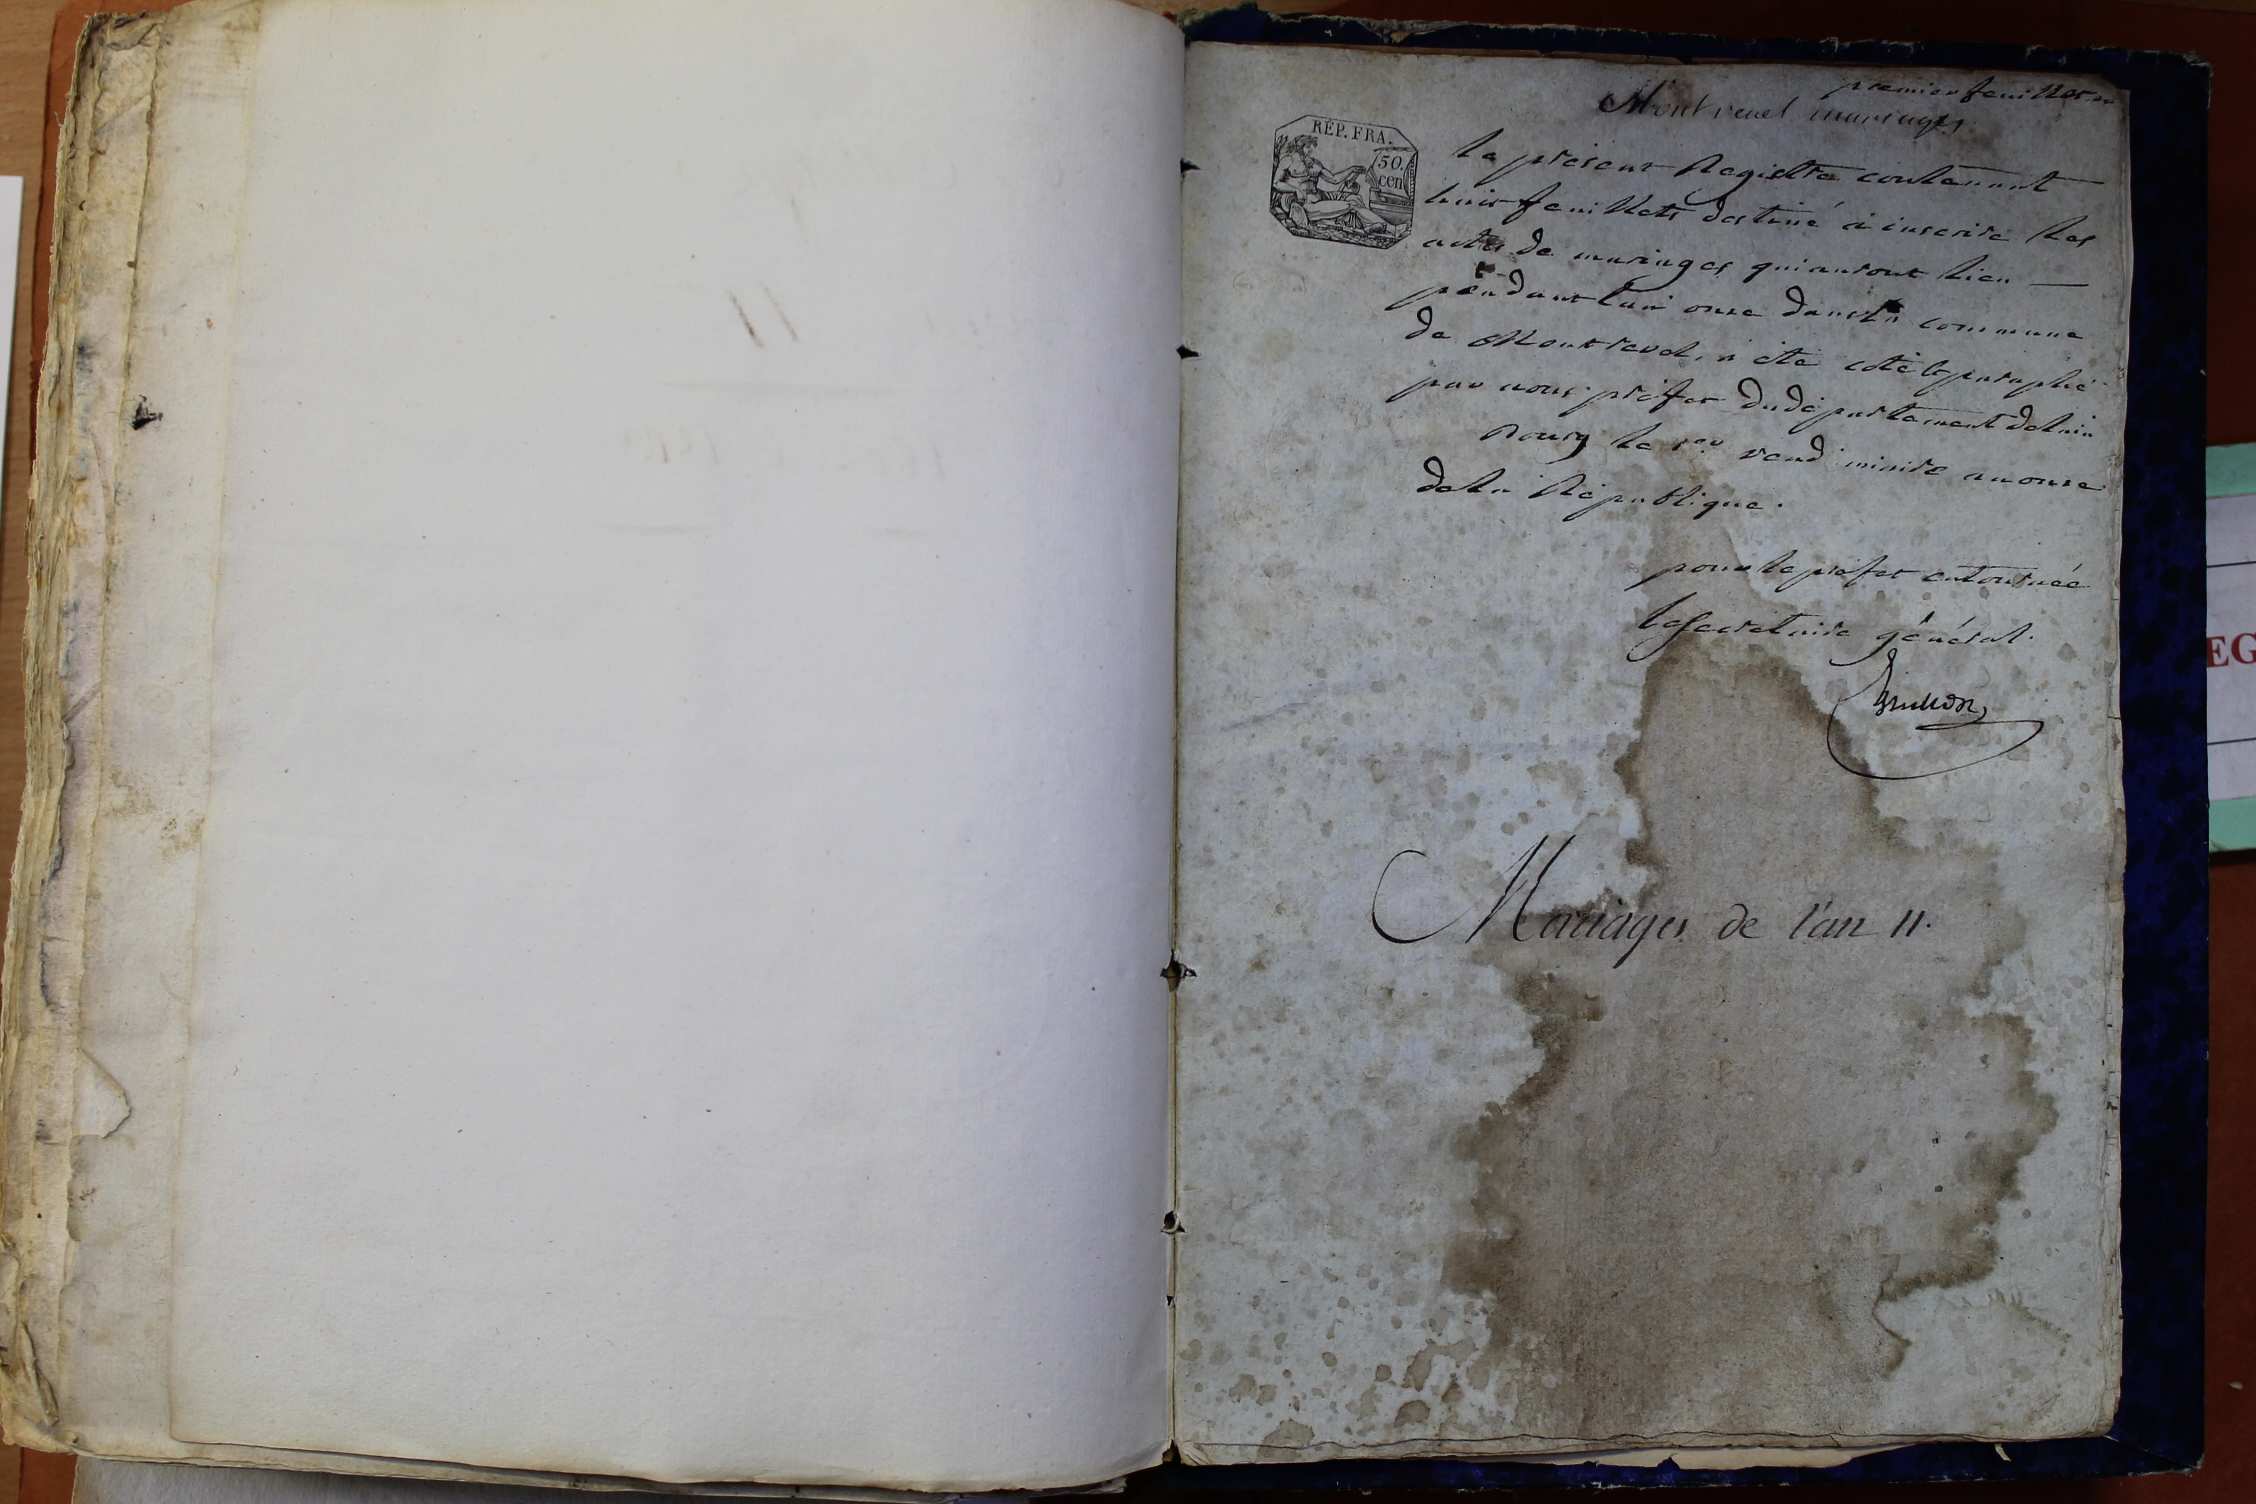 premier feuillet
Montrevel mariages
RÉP. FRA.
50.
cen
le présent Registre contenant
huit feuillets destiné à inscrire les
actes de mariages qui auront lieu —
pendant l'an onze dans la commune
de Montrevel, a été coté & paraphé
par nous préfet du département de l'ain
Bourg le 1er vendémiaire an onze
de la République.
pour le préfet en tournée
le secrétaire général.
Mariages de l'an 11.
EG